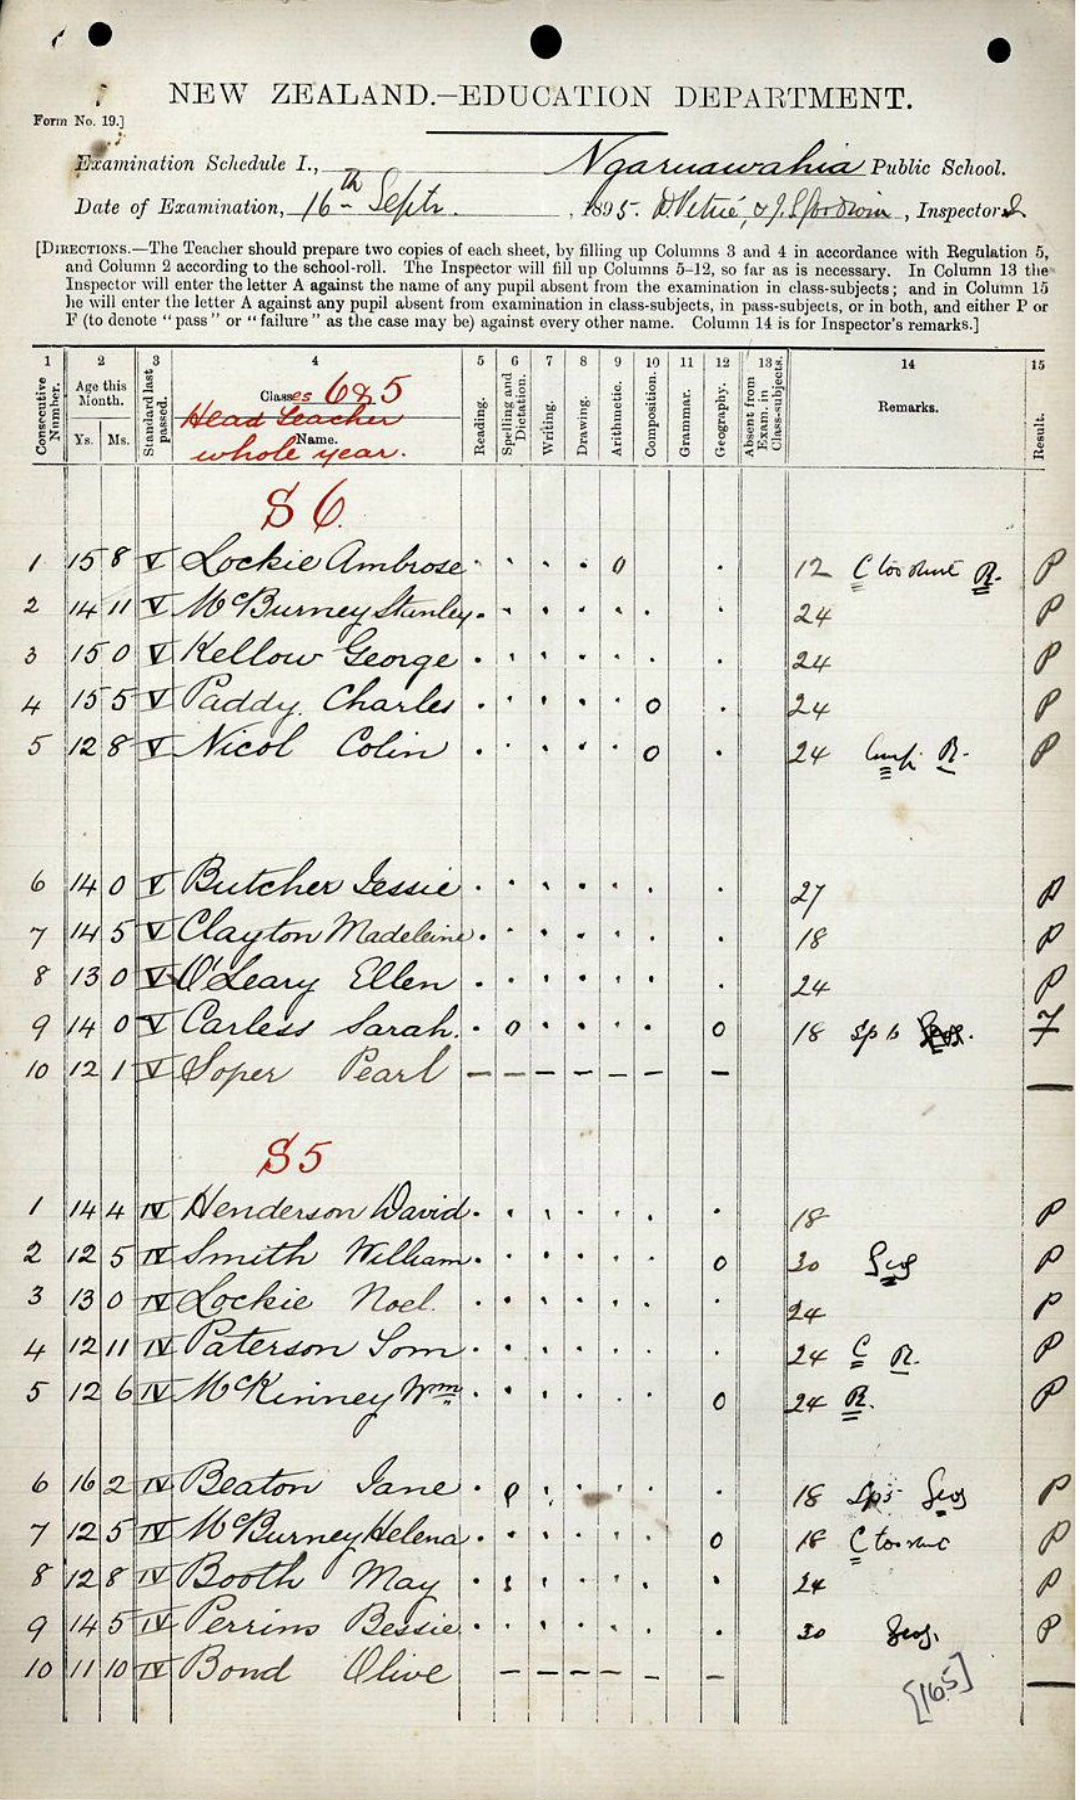 NEW ZEALAND.—EDUCATION DEPARTMENT.
Form No. 19.]
Examination Schedule I., Ngaruawahia Public School.
Date of Examination, 16th Septr. , 1895. D. Petrie, & J. S. Goodwin , Inspectors
[DIRECTIONS.—The Teacher should prepare two copies of each sheet, by filling up Columns 3 and 4 in accordance with Regulation 5,
and Column 2 according to the school-roll. The Inspector will fill up Columns 5–12, so far as is necessary. In Column 13 the
Inspector will enter the letter A against the name of any pupil absent from the examination in class-subjects; and in Column 15
he will enter the letter A against any pupil absent from examination in class-subjects, in pass-subjects, or in both, and either P or
F (to denote "pass" or "failure" as the case may be) against every other name. Column 14 is for Inspector's remarks.]
1 2 3 4 5 6 7 8 9 10 11 12 13 14 15
Consecutive Number.
Age this Month.
Ys. Ms.
Standard last passed.
Classes 6 & 5
Head Teacher
Name.
whole year.
Reading.
Spelling and Dictation.
Writing.
Drawing.
Arithmetic.
Composition.
Grammar.
Geography.
Absent from Exam. in Class-subjects.
Remarks.
Result.
S 6.
1 15 8 V Lockie Ambrose · · · · 0 · 12 C too short R. P
2 14 11 V McBurney Stanley · · · · · · · 24 P
3 15 0 V Kellow George · · · · · · · 24 P
4 15 5 V Paddy Charles · · · · · o · 24 P
5 12 8 V Nicol Colin · · · · · o · 24 R. P
6 14 0 V Butcher Jessie · · · · · · · 27 P
7 14 5 V Clayton Madeleine · · · · · · · 18 P
8 13 0 V O'Leary Ellen · · · · · · · 24 P
9 14 0 V Carless Sarah. · o · · · · o 18 Sp F
10 12 1 V Soper Pearl — — — — — — — —
S 5
1 14 4 IV Henderson David · · · · · · · 18 P
2 12 5 IV Smith William · · · · · · o 30 Geog P
3 13 0 IV Lockie Noel. · · · · · · · 24 P
4 12 11 IV Paterson Tom · · · · · · · 24 C R. P
5 12 6 IV McKinney Wm · · · · · · o 24 R. P
6 16 2 IV Beaton Jane · o · · · · · 18 Geog P
7 12 5 IV McBurney Helena · · · · · · o 18 C too short P
8 12 8 IV Booth May · s · · · · · 24 P
9 14 5 IV Perrins Bessie · · · · · · · 30 Geog. P
10 11 10 IV Bond Olive — — — — — — —
[165]